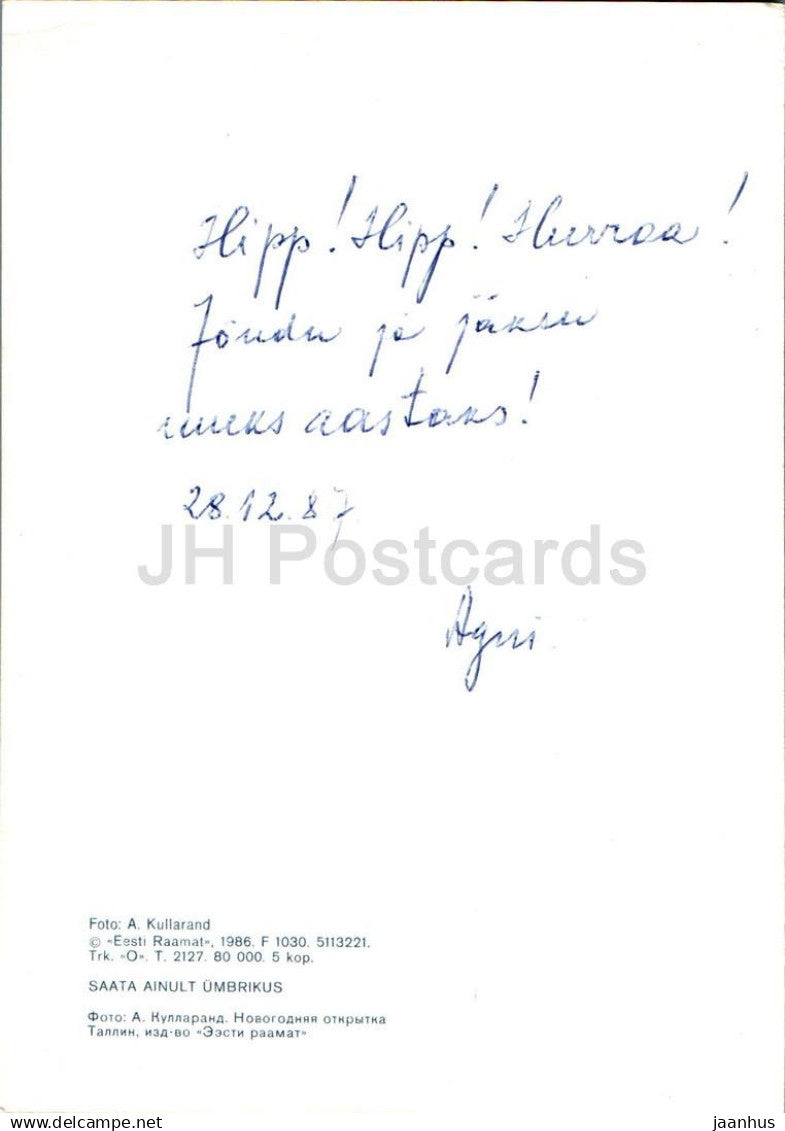 Hipp! Hipp! Hurraa!
Jõudu ja jäksu
uueks aastaks!
28.12.87
JH Postcards
Agni
Foto: A. Kullarand
© «Eesti Raamat», 1986. F 1030. 5113221.
Trk. «O». T. 2127. 80 000. 5 kop.
SAATA AINULT ÜMBRIKUS
Фото: А. Кулларанд. Новогодняя открытка
Таллин, изд-во «Ээсти раамат»
www.delcampe.net
jaanhus